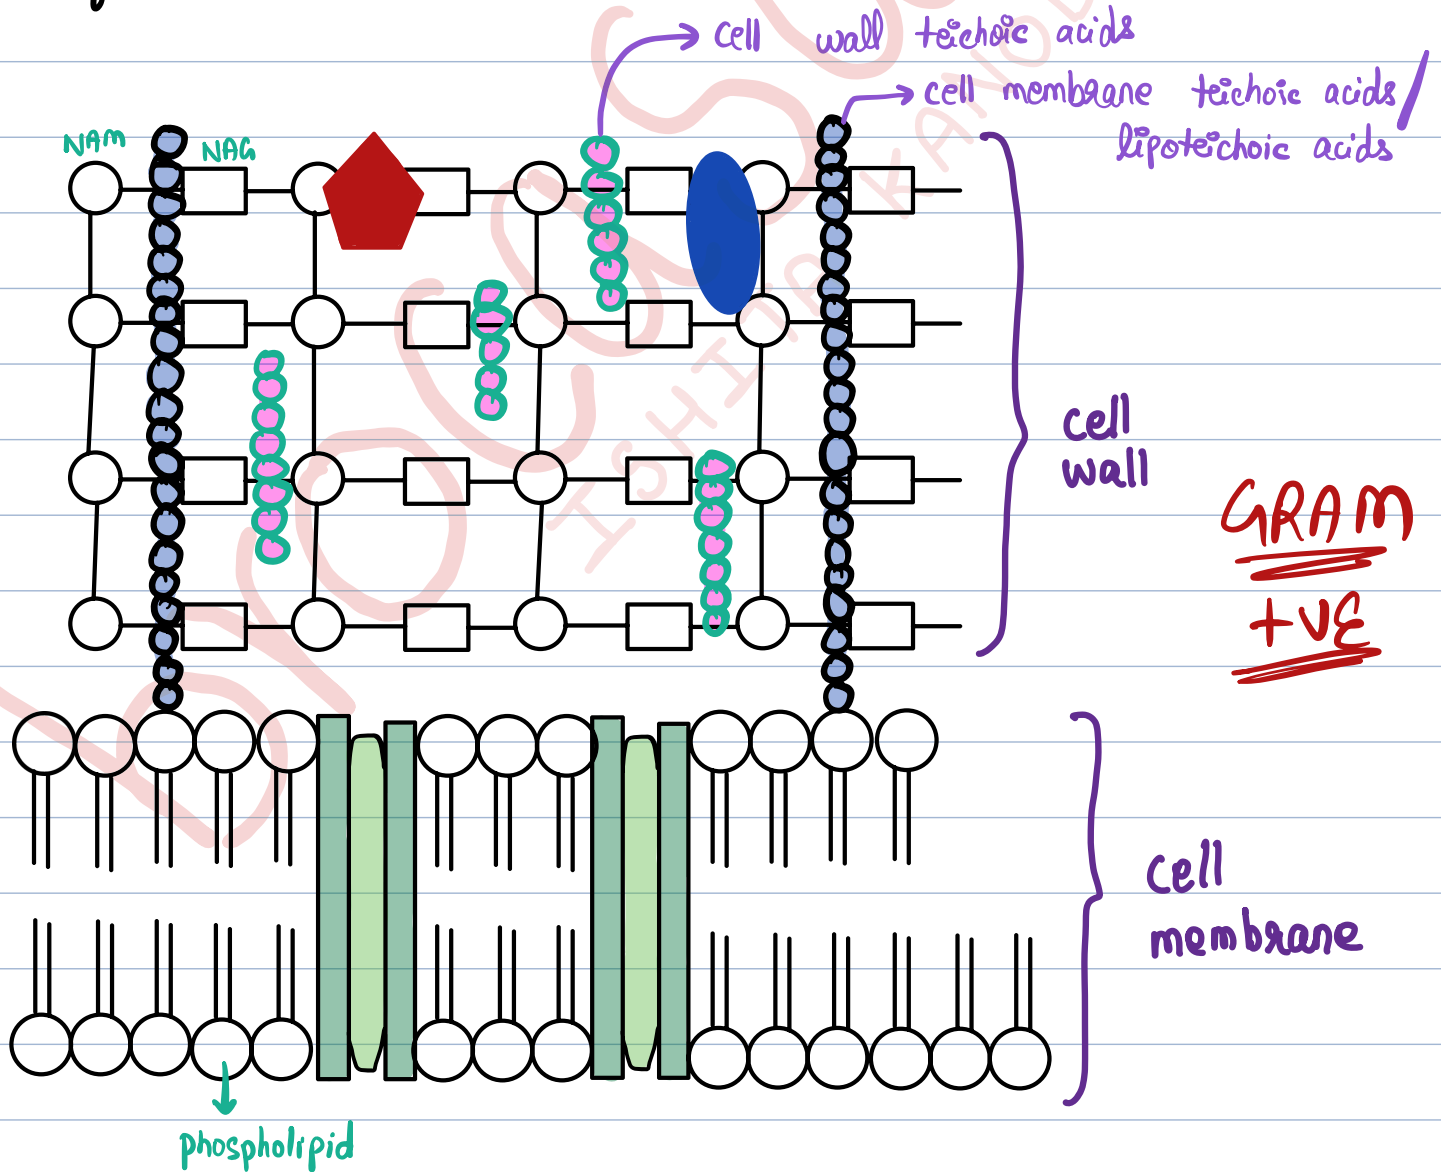 cell wall teichoic acids
cell membrane teichoic acids/
lipoteichoic acids
NAM
NAG
cell
wall
GRAM
+VE
cell
membrane
phospholipid